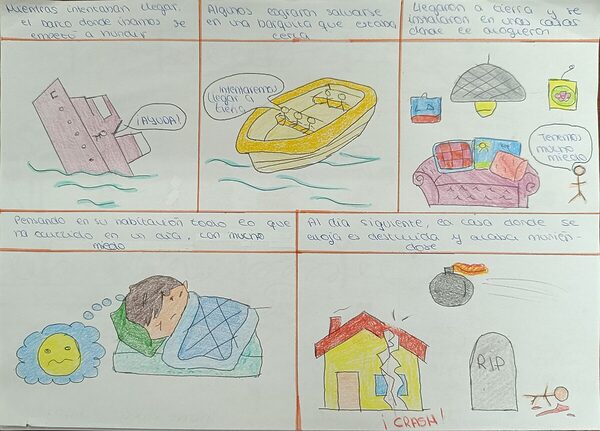 Mientras intentaban llegar,
el barco donde íbamos se
empezó a hundir
¡AYUDA!
Algunos lograron salvarse
en una barquita que estaba
cerca
Intentaremos
llegar a
tierra
Llegaron a tierra y se
instalaron en unas casas
donde se alogieron
Tenemos
mucho
miedo
Pensando en su habitación todo lo que
ha ocurrido en un día, con mucho
miedo
Al día siguiente, la casa donde se
aloja es destruida y acaba murién-
dose
R.I.P
¡CRASH!